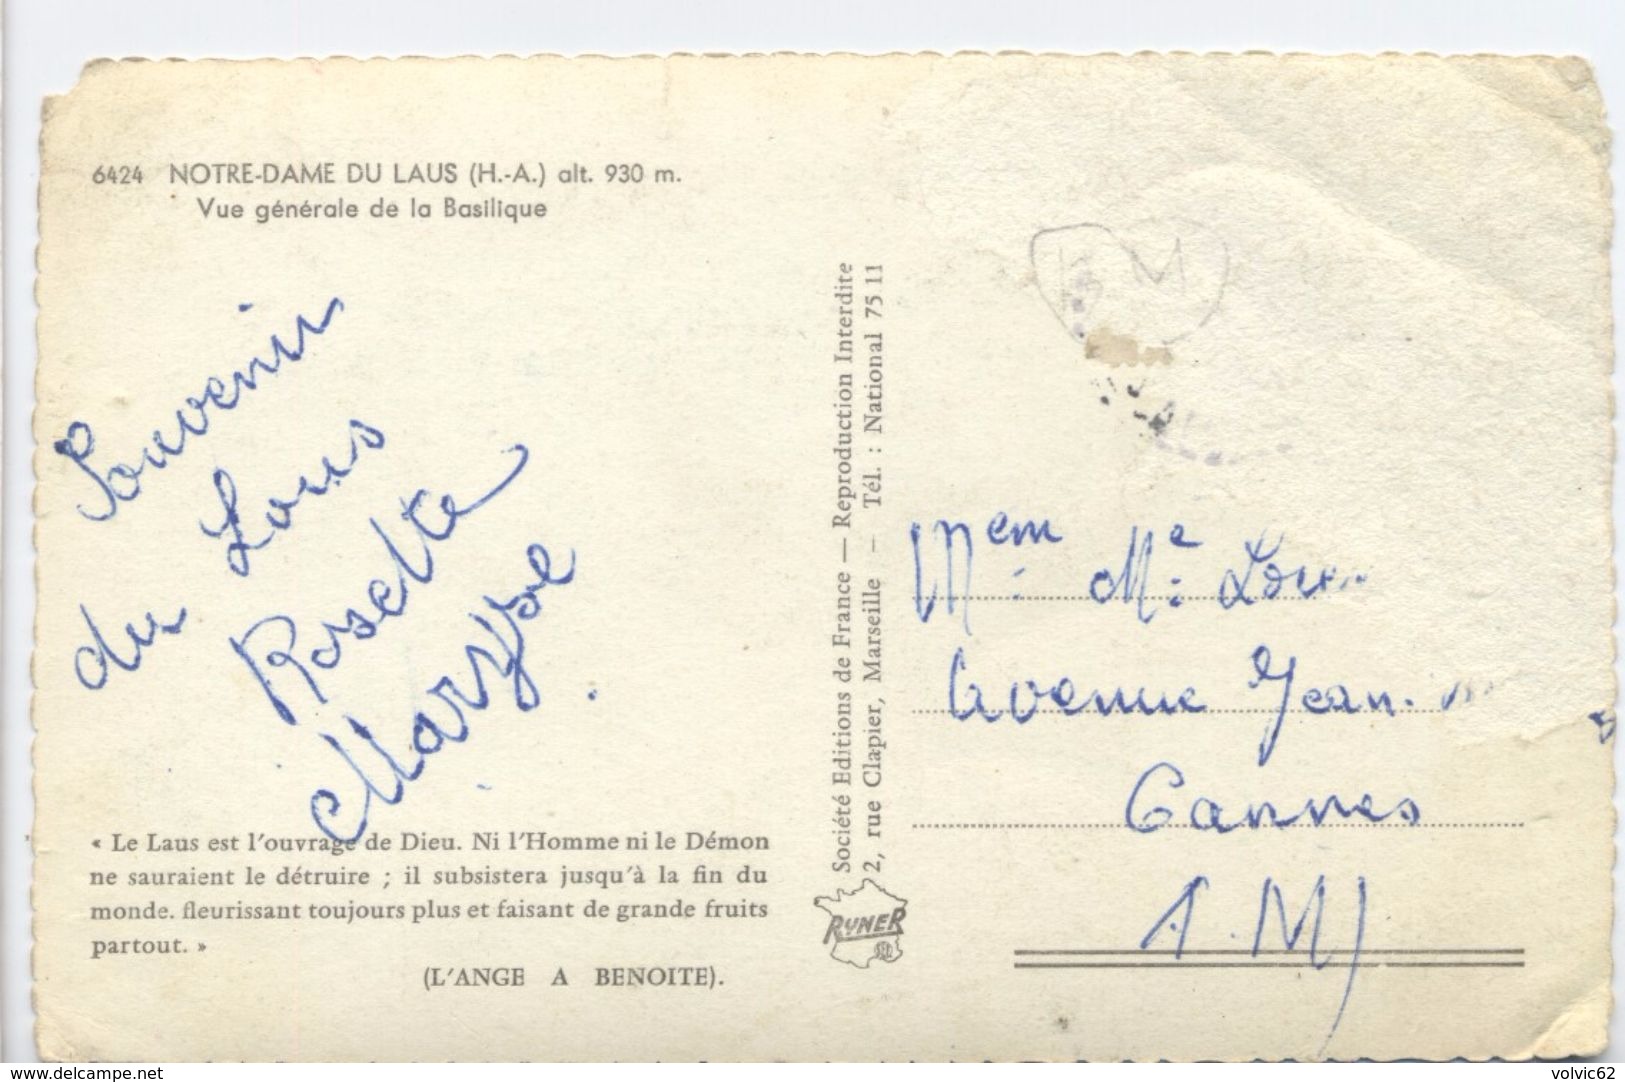 6424 NOTRE-DAME DU LAUS (H.-A.) alt. 930 m.
Vue générale de la Basilique
Souvenir
du Laus
Rosette
« Le Laus est l'ouvrage de Dieu. Ni l'Homme ni le Démon
ne sauraient le détruire ; il subsistera jusqu'à la fin du
monde. fleurissant toujours plus et faisant de grande fruits
partout. »
(L'ANGE A BENOITE).
Société Editions de France — Reproduction Interdite
2, rue Clapier, Marseille – Tél. : National 75 11
RYNER
BM
Avenue Jean.
Cannes
A. M)
www.delcampe.net
volvic62